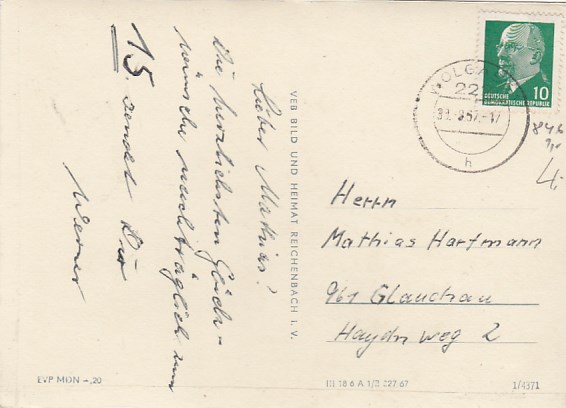 Lieber Mathias!
Die herzlichsten Glück-
wünsche nachträglich zum
15. sendet Dir
Werner
VEB BILD UND HEIMAT REICHENBACH I. V.
DEUTSCHE
DEMOKRATISCHE REPUBLIK
10
WOLGAST
22
67.-17
h
846
4,-
Herrn
Mathias Hartmann
961 Glauchau
Haydn weg 2
EVP MDN -,20
III 18 6 A 1/B 227/67
1/4371